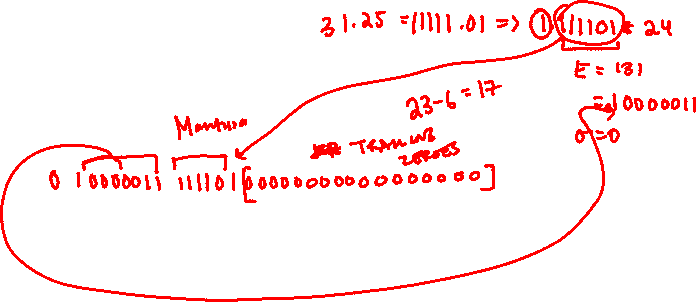 31.25 = 11111.01 => 1 111101 * 24
E = 131
= 10000011
σ = 0
23-6=17
Mantissa
TRAILING
ZEROES
0 10000011 111101 [00000000000000000]